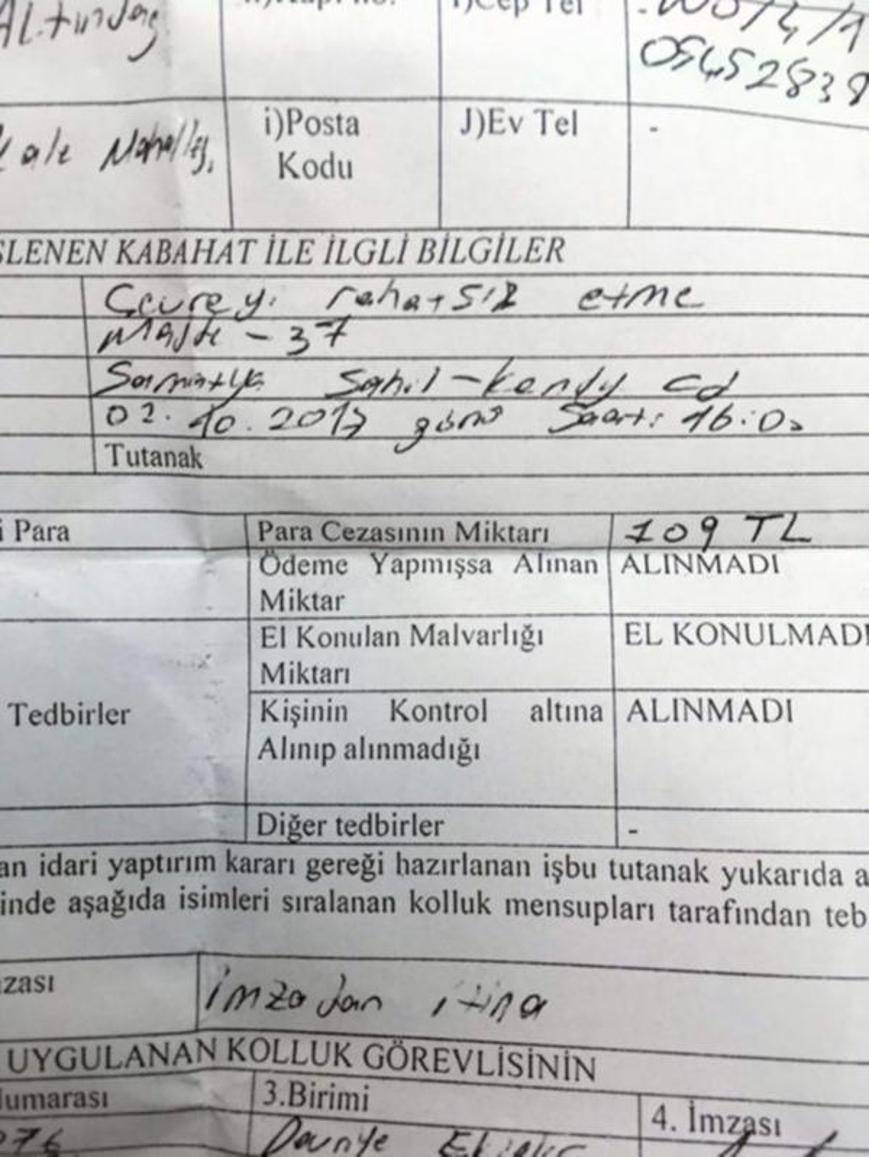 Altındağ
I)Cep Tel
05452839
Kale Mahallesi,
i)Posta
Kodu
J)Ev Tel
-
ŞLENEN KABAHAT İLE İLGLİ BİLGİLER
Çevreyi rahatsız etme
Madde - 37
Samatya Sahil - Kendy cd
02.10.2017 günü Saat: 16:0
Tutanak
i Para
Para Cezasının Miktarı
109 TL
Ödeme Yapmışsa Alınan
Miktar
ALINMADI
El Konulan Malvarlığı
Miktarı
EL KONULMADI
Tedbirler
Kişinin Kontrol altına
Alınıp alınmadığı
ALINMADI
Diğer tedbirler
-
an idari yaptırım kararı gereği hazırlanan işbu tutanak yukarıda a
inde aşağıda isimleri sıralanan kolluk mensupları tarafından teb
zası
İmzadan itina
UYGULANAN KOLLUK GÖREVLİSİNİN
umarası
3.Birimi
4. İmzası
076
Devriye Ekipler